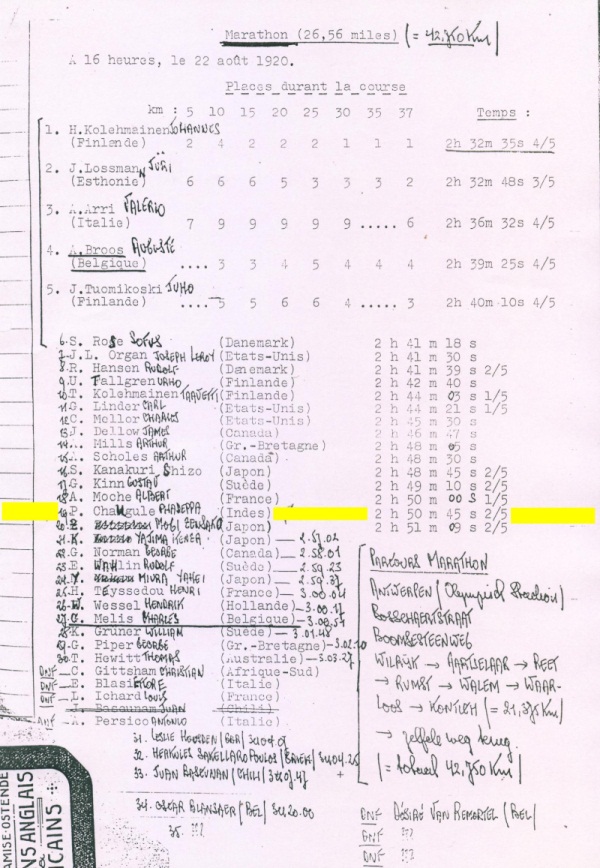 Marathon (26,56 miles) (= 42,750 Km)
À 16 heures, le 22 août 1920.
Places durant la course
km : 5 10 15 20 25 30 35 37 Temps :
1. H.Kolehmainen JOHANNES
(Finlande) 2 4 2 2 2 1 1 1 2h 32m 35s 4/5
2. J.Lossmann JURI
(Esthonie) 6 6 6 5 3 3 3 2 2h 32m 48s 3/5
3. A.Arri VALERIO
(Italie) 7 9 9 9 9 9 ..... 6 2h 36m 32s 4/5
4. A.Broos AUGUSTE
(Belgique) .... 3 3 4 5 4 4 4 2h 39m 25s 4/5
5. J.Tuomikoski JUHO
(Finlande) .... 5 5 6 6 4 ..... 3 2h 40m 10s 4/5
6. S. Rose SOFUS (Danemark) 2 h 41 m 18 s
7. J.L. Organ JOSEPH LEROY (Etats-Unis) 2 h 41 m 30 s
8. R. Hansen RUDOLF (Danemark) 2 h 41 m 39 s 2/5
9. U. Fallgren URHO (Finlande) 2 h 42 m 40 s
10. T. Kolehmainen TAAVETTI (Finlande) 2 h 44 m 03 s 1/5
11. G. Linder CARL (Etats-Unis) 2 h 44 m 21 s 1/5
12. C. Mellor CHARLES (Etats-Unis) 2 h 45 m 30 s
13. J. Dellow JAMES (Canada) 2 h 46 m 47 s
14. .. Mills ARTHUR (Gr.-Bretagne) 2 h 48 m 05 s
15. A. Scholes ARTHUR (Canada) 2 h 48 m 30 s
16. S. Kanakuri Shizo (Japon) 2 h 48 m 45 s 2/5
17. G. Kinn GUSTAV (Suède) 2 h 49 m 10 s 2/5
18. A. Moche ALBERT (France) 2 h 50 m 00 s 1/5
19. P. Chaugule PHADEPPA (Indes) 2 h 50 m 45 s 2/5
20. Z. MOGI ZENSAKU (Japon) 2 h 51 m 09 s 2/5
21. K. YAJIMA KENZA (Japon) — 2.57.02
22. G. Norman GEORGE (Canada) — 2.58.01
23. E. Wahlin RUDOLF (Suède) — 2.59.23
24. Y. MIURA YAHEI (Japon) — 2.59.37
25. H. Teyssedou HENRI (France) — 3.00.04
26. W. Wessel HENDRIK (Hollande) — 3.00.17
27. C. Melis CHARLES (Belgique) — 3.00.54
28. K. Gruner WILLIAM (Suède) — 3.01.48
29. G. Piper GEORGE (Gr.-Bretagne) — 3.02.10
30. T. Hewitt THOMAS (Australie) — 3.03.27
DNF — C. Gittsham CHRISTIAN (Afrique-Sud)
DNF — E. Blasi ETTORE (Italie)
DNF — L. Ichard LOUIS (France)
J. Bascunam JUAN (Chili)
DNF — A. Persico ANTONIO (Italie)
31. LESLIE HOUSDEN (GBR) 3u04.09
32. HERKULES SAKELLAROPOULOS (GRIEK) 3u04.25
33. JUAN BASCUNAN (CHILI) 3u07.47
34. OSCAR BLANSAER (BEL) 3u20.00
35. ???
PARCOURS MARATHON
ANTWERPEN (Olympisch Stadion)
BOSSCHAERTSTRAAT
BOOMSESTEENWEG
WILRIJK → AARTSELAAR → REET
→ RUMST → WALEM → WAAR-
LOOS → KONTICH (= 21,375 Km)
→ zelfde weg terug.
(= totaal 42,750 Km)
DNF Désiré VAN REMORTEL (BEL)
DNF ???
DNF ???
AMISE-OSTENDE
NS ANGLAIS
&
ICAINS